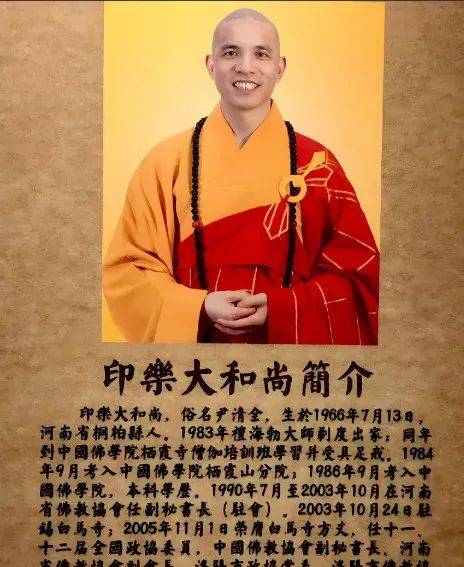 印樂大和尚簡介
印樂大和尚，俗名尹清全，生於1966年7月13日，
河南省桐柏縣人。1983年禮海勃大師剃度出家；同年
到中國佛學院栖霞寺僧伽培訓班學習并受具足戒。1984
年9月考入中國佛學院栖霞山分院；1986年9月考入中
國佛學院，本科學歷。1990年7月至2003年10月在河南
省佛教協會任副秘書長（駐會）。2003年10月24日駐
錫白馬寺；2005年11月1日榮膺白馬寺方丈，任十一、
十二届全國政協委員，中國佛教協會副秘書長、河南
省佛教協會副會長、洛陽市政協常委、洛陽市佛教協